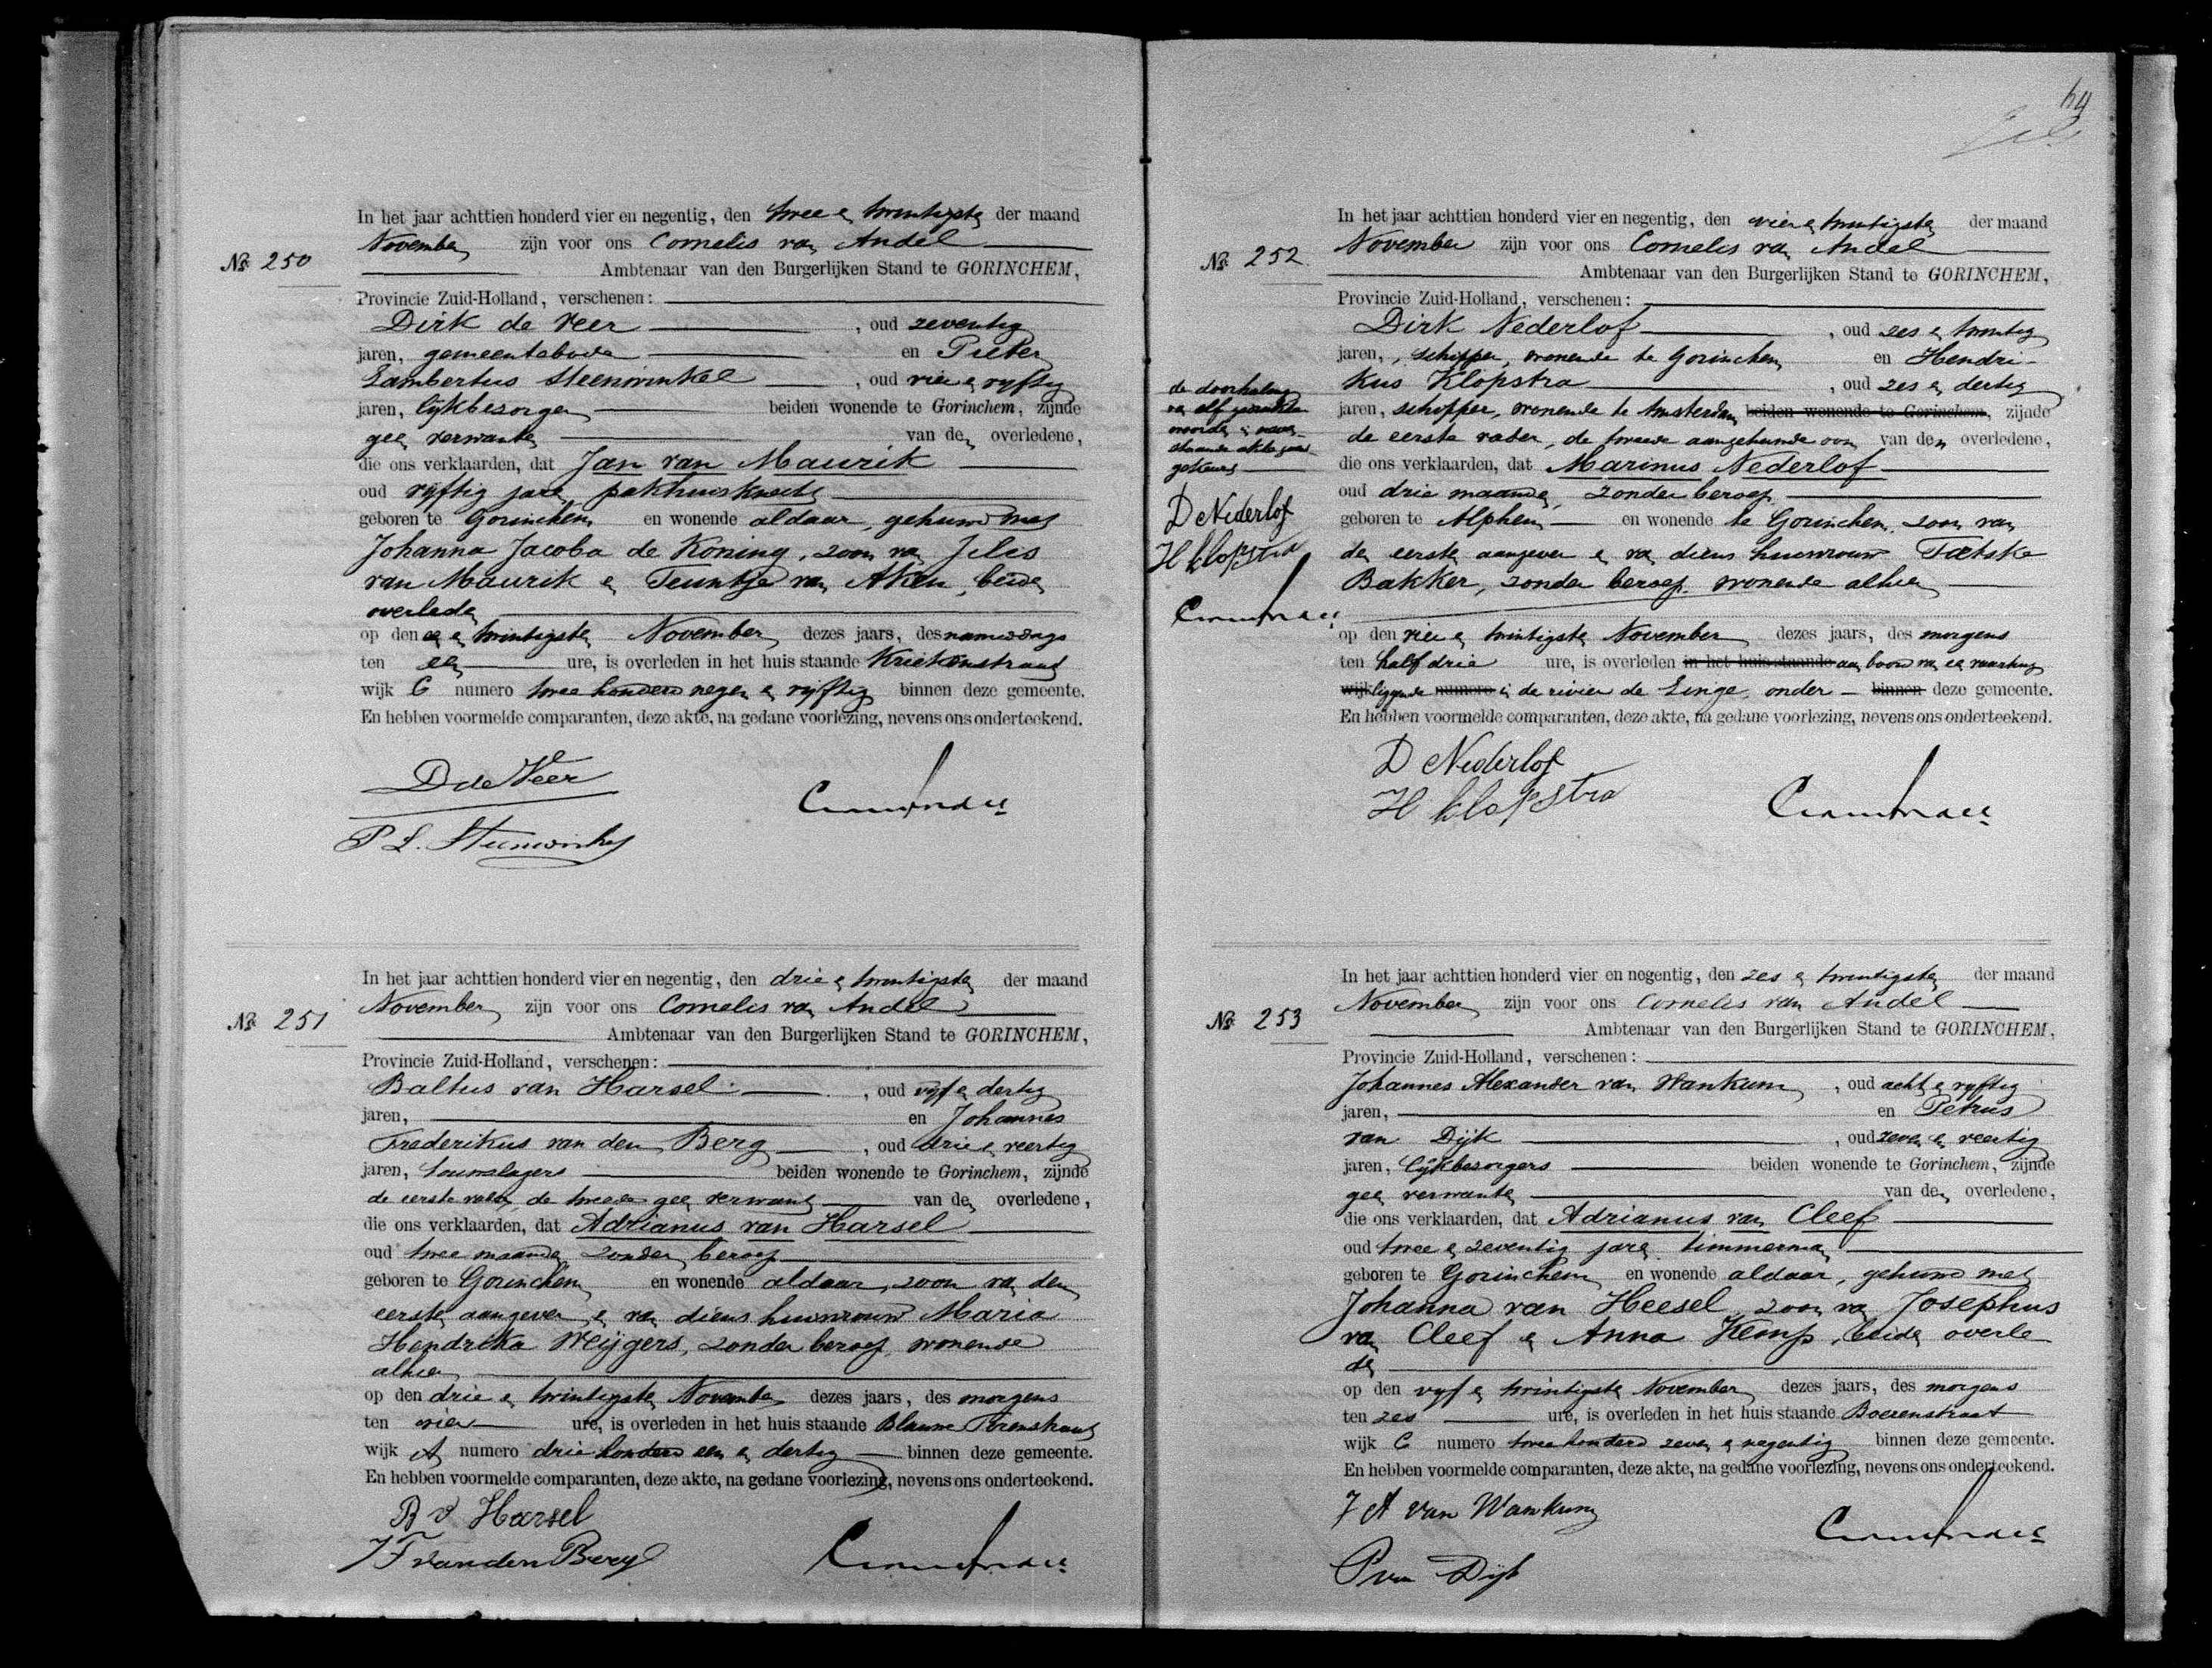 In het jaar achttien honderd vier en negentig, den twee en twintigste der maand
November zijn voor ons Cornelis van Andel
Nº 250
Ambtenaar van den Burgerlijken Stand te GORINCHEM,
Provincie Zuid-Holland, verschenen:
Dirk de Veer, oud zeventig
jaren, gemeentebode en Pieter
Lambertus Steenwinkel, oud vier en vyftig
jaren, lijkbezorger beiden wonende te Gorinchem, zijnde
geen verwanten van den overledene,
die ons verklaarden, dat Jan van Maurik
oud vyftig jaren, pakhuisknecht
geboren te Gorinchem en wonende aldaar, gehuwd met
Johanna Jacoba de Koning, zoon van Jelis
van Maurik en Teuntje van Aken, beide
overleden
op den een en twintigsten November dezes jaars, des namiddags
ten een ure, is overleden in het huis staande Kriekenstraat
wijk C numero twee honderd negen en vyftig binnen deze gemeente.
En hebben voormelde comparanten, deze akte, na gedane voorlezing, nevens ons onderteekend.
D de Veer
P L. Steenwinkel
In het jaar achttien honderd vier en negentig, den drie en twintigsten der maand
November zijn voor ons Cornelis van Andel
Nº 251
Ambtenaar van den Burgerlijken Stand te GORINCHEM,
Provincie Zuid-Holland, verschenen:
Baltus van Harsel, oud vyf en dertig
jaren, en Johannes
Frederikus van den Berg, oud drie en veertig
jaren, touwslagers beiden wonende te Gorinchem, zijnde
de eerste vader, de tweede geen verwant van den overledene,
die ons verklaarden, dat Adrianus van Harsel
oud twee maanden, zonder beroep
geboren te Gorinchem en wonende aldaar, zoon van den
eersten aangever en van diens huisvrouw Maria
Hendrika Weijgers, zonder beroep, wonende
alhier
op den drie en twintigsten November dezes jaars, des morgens
ten vier ure, is overleden in het huis staande Blauwe Torenstraat
wijk A numero drie honderd een en dertig binnen deze gemeente.
En hebben voormelde comparanten, deze akte, na gedane voorlezing, nevens ons onderteekend.
B v Harsel
J F van den Berg
64
In het jaar achttien honderd vier en negentig, den vier en twintigsten der maand
November zijn voor ons Cornelis van Andel
Nº 252
Ambtenaar van den Burgerlijken Stand te GORINCHEM,
Provincie Zuid-Holland, verschenen:
Dirk Nederlof, oud zes en twintig
jaren, schipper, wonende te Gorinchem en Hendri-
kus Klopstra, oud zes en dertig
jaren, schipper, wonende te Amsterdam beiden wonende te Gorinchem, zijnde
de eerste vader, de tweede aangehuwde oom van den overledene,
die ons verklaarden, dat Marinus Nederlof
oud drie maanden, zonder beroep
geboren te Alphen en wonende te Gorinchem, zoon van
den eersten aangever en van diens huisvrouw Tætske
Bakker, zonder beroep, wonende alhier
op den vier en twintigsten November dezes jaars, des morgens
ten half drie ure, is overleden in het huis staande aan boord van een vaartuig
wijk liggende numero in de rivier de Linge, onder binnen deze gemeente.
En hebben voormelde comparanten, deze akte, na gedane voorlezing, nevens ons onderteekend.
de doorhaling
van elf gedrukte
woorden in neven-
staande akte goed-
gekeurd
D Nederlof
H klopstra
D Nederlof
H klopstra
In het jaar achttien honderd vier en negentig, den zes en twintigsten der maand
November zijn voor ons Cornelis van Andel
Nº 253
Ambtenaar van den Burgerlijken Stand te GORINCHEM,
Provincie Zuid-Holland, verschenen:
Johannes Alexander van Wankum, oud acht en vyftig
jaren, en Petrus
van Dijk, oud zeven en veertig
jaren, lijkbezorgers beiden wonende te Gorinchem, zijnde
geen verwanten van den overledene,
die ons verklaarden, dat Adrianus van Cleef
oud twee en zeventig jaren, timmerman
geboren te Gorinchem en wonende aldaar, gehuwd met
Johanna van Heesel, zoon van Josephus
van Cleef en Anna Kemp, beide overle
den
op den vyf en twintigsten November dezes jaars, des morgens
ten zes ure, is overleden in het huis staande Boerenstraat
wijk C numero twee honderd zeven en negentig binnen deze gemeente.
En hebben voormelde comparanten, deze akte, na gedane voorlezing, nevens ons onderteekend.
J A van Wankum
P van Dijk